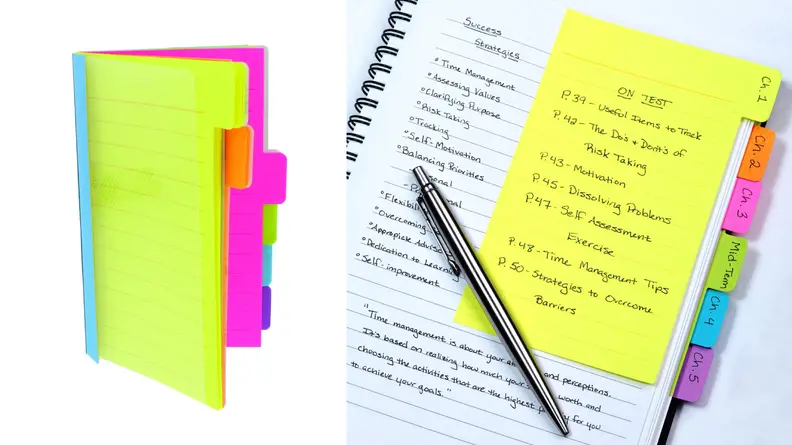 Success
Strategies
°Time Management
°Assessing Values
°Clarifying Purpose
°Risk Taking
°Tracking
°Self-Motivation
°Balancing Priorities
°Overcoming
°Dedication to Learning
°Self-improvement
"Time management is about your and perceptions.
It's based on realizing how much your worth and
choosing the activities that are the highest for you
to achieve your goals."
ON TEST
P.39-Useful Items to Track
P.42-The Do's & Dont's of
Risk Taking
P.43-Motivation
P.45-Dissolving Problems
P.47-Self Assessment
Exercise
P.48-Time Management Tips
P.50-Strategies to Overcome
Barriers
Ch.1
Ch.2
Ch.3
Mid-Term
Ch.4
Ch.5